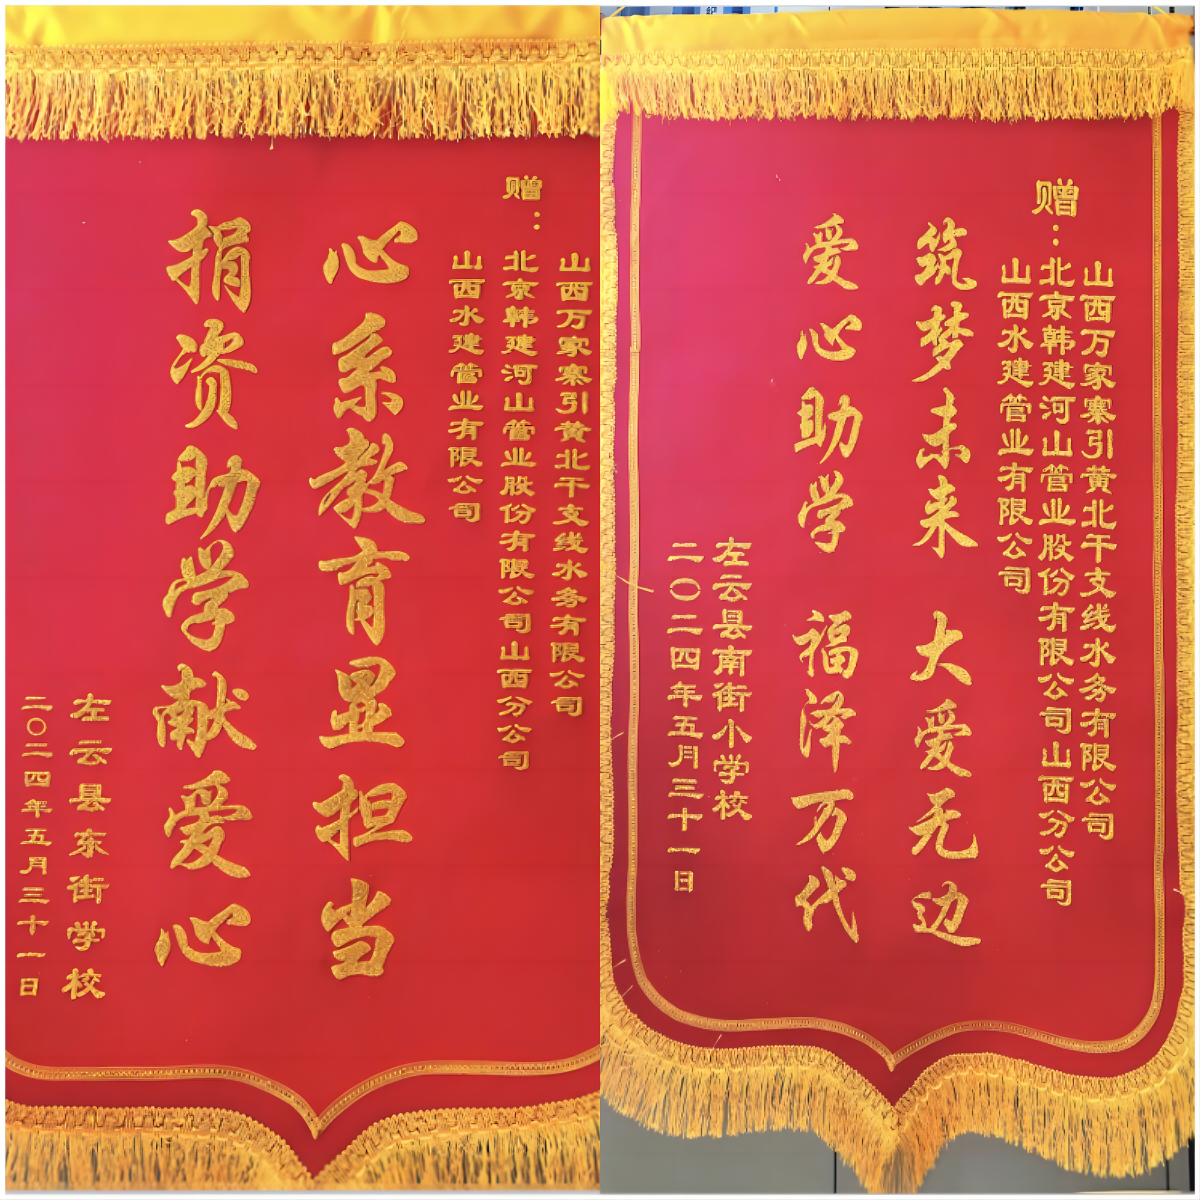 赠：
山西万家寨引黄北干支线水务有限公司
北京韩建河山管业股份有限公司山西分公司
山西水建管业有限公司
心系教育显担当
捐资助学献爱心
左云县东街学校
二〇二四年五月三十一日
赠：
山西万家寨引黄北干支线水务有限公司
北京韩建河山管业股份有限公司山西分公司
山西水建管业有限公司
筑梦未来 大爱无边
爱心助学 福泽万代
左云县南街小学校
二〇二四年五月三十一日